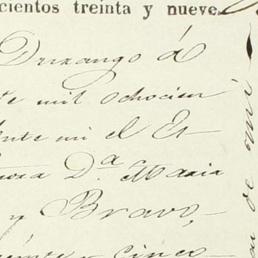 cientos treinta y nueve.
Durango á
te mil ochocien
ante mi el Es
ora D.ª Maria
y Bravo,
y cinco